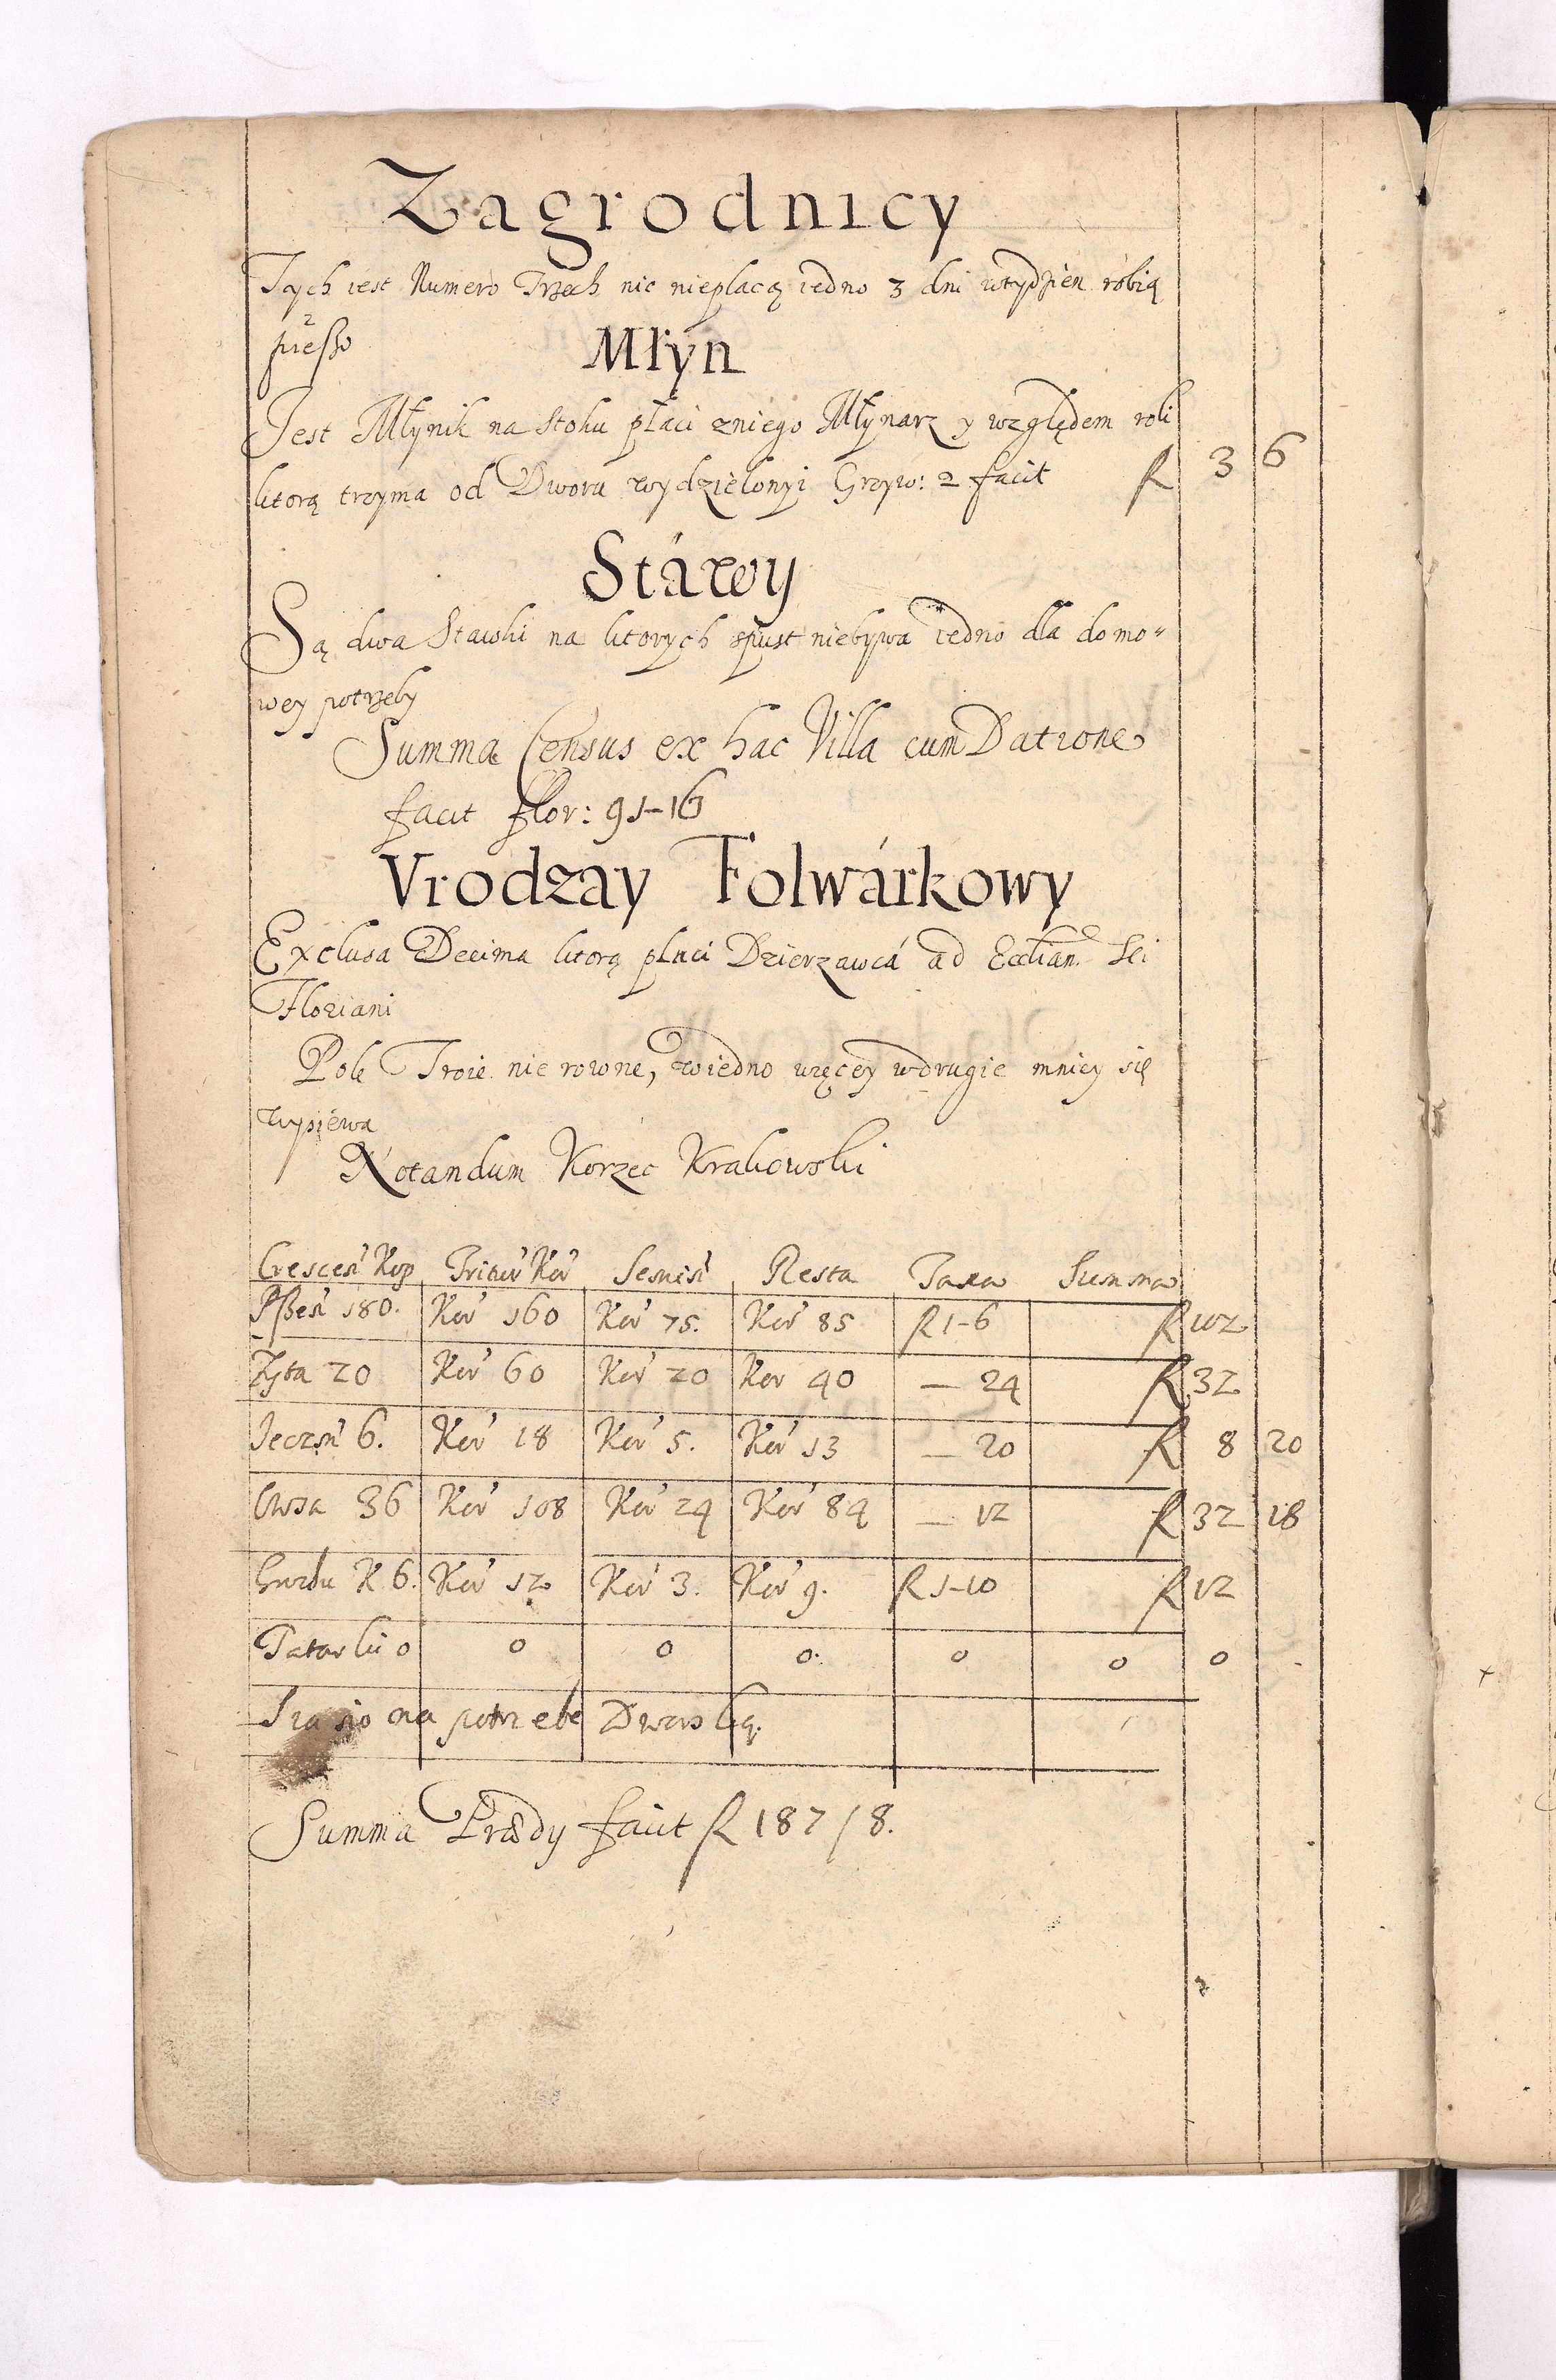 Zagrodnicy
Tych iest Numero Trzech nic nieplacą iedno 3 dni wtydzien robią
pieszo
Młyn
Jest Młynik na Stoku płaci zniego Młynarz y względem roli
ktorą trzyma od Dworu wydzielonyi Grzyw: 2 facit fl 3 6
Stáwy
Są dwa Stawki na ktorych spust niebywa iedno dla domo-
wey potrzeby
Summa Census ex hac Villa cum Datione
facit flor: 91-16
Vrodzay Folwárkowy
Exclusa Decima ktorą płaci Dzierzawcá ad Eccliam Sci
Floriani
Pole Troie nie rowne, wiedno więcey wdrugie mniey się
wysiewa
Notandum Korzec Krakowski
Crescen Kop Tritur Kor Semin Resta Taxa Summa
Pszen 180. Kor 160 Kor 75. Kor 85 fl 1-6 fl 102
Zyta 20 Kor 60 Kor 20 Kor 40 — 24 fl 32
Ieczm 6. Kor 18 Kor 5. Kor 13 — 20 fl 8 20
Owsa 36 Kor 108 Kor 24 Kor 84 — 12 fl 32 18
Grochu K 6. Kor 12 Kor 3. Kor 9. fl 1-10 fl 12
Tatarki 0 0 0 0. 0 0 0
Siano na potrzebe Dworską.
Summa Prædy facit fl 187/8.